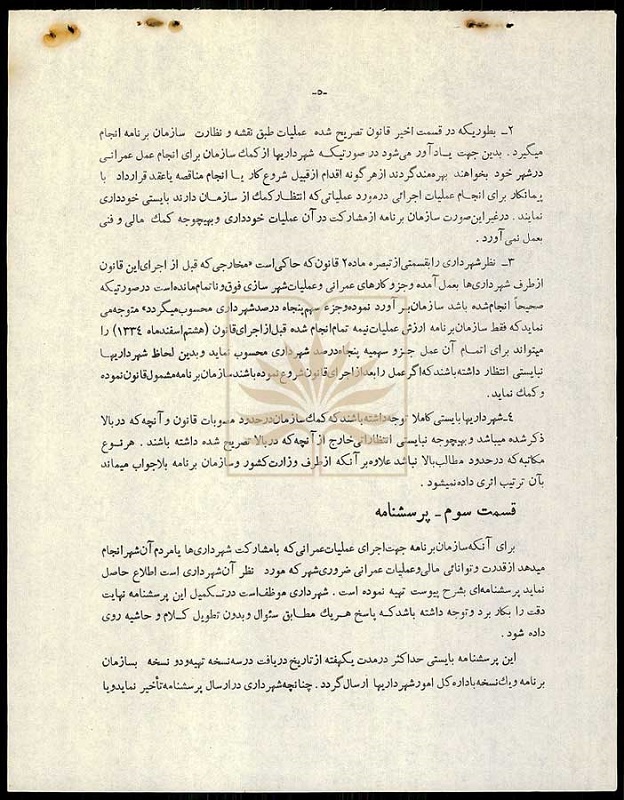 -۵-
۲ـ بطوریکه در قسمت اخیر قانون تصریح شده عملیات طبق نقشه و نظارت سازمان برنامه انجام
میگیرد . بدین جهت یادآور می‌شود در صورتیکه شهرداریها از کمك سازمان برای انجام عمل عمرانی
در شهر خود بخواهند بهره‌مند گردند از هر گونه اقدام از قبیل شروع کار یا انجام مناقصه یا عقد قرارداد با
پیمانکار برای انجام عملیات اجرائی در مورد عملیاتی که انتظار کمك از سازمان دارند بایستی خودداری
نمایند . در غیر این صورت سازمان برنامه از مشارکت در آن عملیات خودداری و بهیچوجه کمك مالی و فنی
بعمل نمی‌آورد .
۳ـ نظر شهرداری را بقسمتی از تبصره ماده ۲ قانون که حاکی است «مخارجی که قبل از اجرای این قانون
از طرف شهرداری‌ها بعمل آمده و جزو کارهای عمرانی و عملیات شهر سازی فوق و ناتمام مانده است در صورتیکه
صحیحاً انجام شده باشد سازمان بر آورد نموده و جزء سهم پنجاه درصد شهرداری محسوب میگردد» متوجه می
نماید که فقط سازمان برنامه ارزش عملیات نیمه تمام انجام شده قبل از اجرای قانون (هشتم اسفند ماه ۱۳۳۴) را
میتواند برای اتمام آن عمل جزو سهمیه پنجاه درصد شهرداری محسوب نماید و بدین لحاظ شهرداریها
نبایستی انتظار داشته باشند که اگر عمل را بعد از اجرای قانون شروع نموده باشند سازمان برنامه مشمول قانون نموده
و کمك نماید .
۴ـ شهرداریها بایستی کاملا توجه داشته باشند که کمك سازمان در حدود مصوبات قانون و آنچه که در بالا
ذکر شده میباشد و بهیچوجه نبایستی انتظاراتی خارج از آنچه که در بالا تصریح شده داشته باشند . هر نوع
مکاتبه که در حدود مطالب بالا نباشد علاوه بر آنکه از طرف وزارت کشور و سازمان برنامه بلاجواب میماند
بآن ترتیب اثری داده نمیشود .
قسمت سوم ـ پرسشنامه
برای آنکه سازمان برنامه جهت اجرای عملیات عمرانی که با مشارکت شهرداری‌ها یا مردم آن شهر انجام
میدهد از قدرت و توانائی مالی و عملیات عمرانی ضروری شهر که مورد نظر آن شهرداری است اطلاع حاصل
نماید پرسشنامه‌ای بشرح پیوست تهیه نموده است . شهرداری موظف است در تکمیل این پرسشنامه نهایت
دقت را بکار برد و توجه داشته باشد که پاسخ هریك مطابق سئوال و بدون تطویل کلام و حاشیه روی
داده شود .
این پرسشنامه بایستی حداکثر در مدت یکهفته از تاریخ دریافت در سه نسخه تهیه و دو نسخه بسازمان
برنامه و یك نسخه باداره کل امور شهرداریها ارسال گردد . چنانچه شهرداری در ارسال پرسشنامه تأخیر نماید و یا